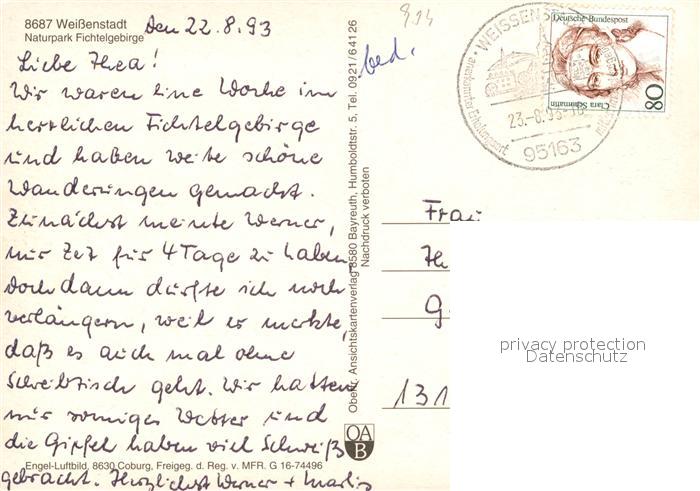 8687 Weißenstadt
Naturpark Fichtelgebirge
den 22.8.93
Liebe Thea!
Wir waren eine Woche im
herrlichen Fichtelgebirge
und haben weite schöne
Wanderungen gemacht.
Zunächst meinte Werner,
nur Zeit für 4 Tage zu haben,
doch dann durfte ich noch
verlängern, weil er merkte,
daß es auch mal ohne
Schreibtisch geht. Wir hatten
nur sonniges Wetter und
die Gipfel haben viel Schweiß
gebracht. Herzlichst Werner +
Engel-Luftbild, 8630 Coburg, Freigeg. d. Reg. v. MFR. G 16-74496
Oberfr. Ansichtskartenverlag 8580 Bayreuth, Humboldtstr. 5, Tel. 0921/64126
Nachdruck verboten
OA
B
934
bed.
WEISSENST
anerkannter Erholungsort
23.-8.93-16
95163
Deutsche Bundespost
Clara Schumann
80
Frau
Th
G
131
privacy protection
Datenschutz